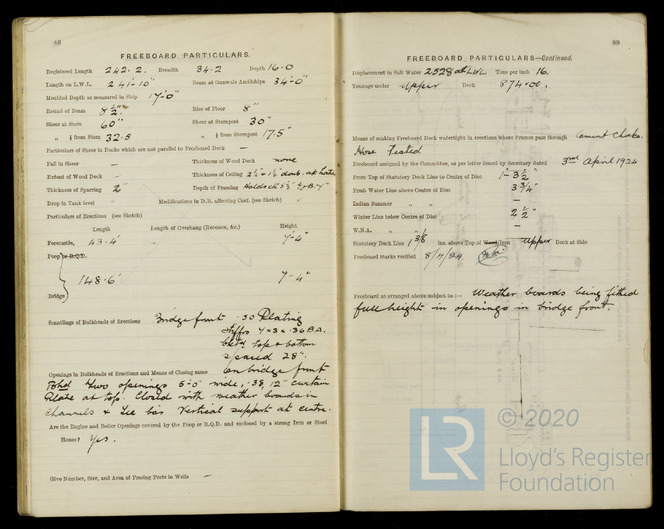 88
FREEBOARD PARTICULARS.
Registered Length 242.2. Breadth 34.2 Depth 16.0
Length on L.W.L. 241'-10" Beam at Gunwale Amidships 34'-0"
Moulded Depth as measured in Ship 17'-0"
Round of Beam 8½" Rise of Floor 8"
Sheer at Stem 60" Sheer at Sternpost 30"
" ⅛ from Stem 32.5 " ⅛ from Sternpost 17.5"
Particulars of Sheer in Decks which are not parallel to Freeboard Deck —
Fall in Sheer — Thickness of Wood Deck none
Extent of Wood Deck — Thickness of Ceiling 2½ + 1½ doub. at hatch
Thickness of Sparring 2" Depth of Framing
Drop in Tank level — Modifications in D.B. affecting Coef. (see Sketch)
Particulars of Erections (see Sketch)
Length Length of Overhang (Recesses, &c.) Height
Forecastle, 43.4' 7'-4"
Poop or R.Q.D.
148.6' 7'-4"
Bridge
Scantlings of Bulkheads of Erections Bridge front .30 Plating
Stiffrs 7 x 3 x .36 B.A.
bkts top & bottom
spaced 28".
Openings in Bulkheads of Erections and Means of Closing same In bridge front
Bhd two openings 5'-0" wide, .38, 12" curtain
Plate at top, closed with weather boards in
channels & Tee bar vertical support at centre.
Are the Engine and Boiler Openings covered by the Poop or R.Q.D. and enclosed by a strong Iron or Steel
House? Yes.
Give Number, Size, and Area of Freeing Ports in Wells —
89
FREEBOARD PARTICULARS—Continued.
Displacement in Salt Water 2528 at L.W.L. Tons per inch 16.
Tonnage under Upper Deck 874.00.
Means of making Freeboard Deck watertight in erections where Frames pass through Cement Chocks.
Hose Tested
Freeboard assigned by the Committee, as per letter issued by Secretary dated 3rd April 1924
From Top of Statutory Deck Line to Centre of Disc 1'-3½"
Fresh Water Line above Centre of Disc 3¾"
Indian Summer " " —
Winter Line below Centre of Disc 2½"
W.N.A. " " —
Statutory Deck Line 1⅜ ins. above Top of Wood/Iron Upper Deck at Side
Freeboard marks verified 8/7/24
Freeboard as arranged above subject to:— Weather boards being fitted
full height in openings in bridge front.
LR
© 2020
Lloyd's Register
Foundation